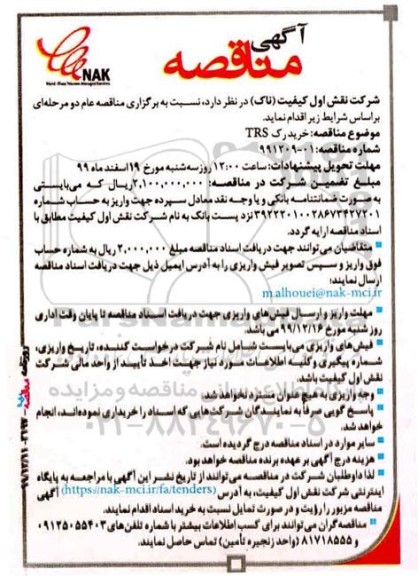 آگهی
مناقصه
NAK
شرکت نقش اول کیفیت (ناک) در نظر دارد، نسبت به برگزاری مناقصه عام دو مرحله‌ای
براساس شرایط زیر اقدام نماید.
موضوع مناقصه: خرید رک TRS
شماره مناقصه: ۰۱-۹۹۱۳۰۹
مهلت تحویل پیشنهادات: ساعت ۱۲:۰۰ روز سه‌شنبه مورخ ۱۹ اسفند ماه ۹۹
مبلغ تضمین شرکت در مناقصه: ۲,۱۰۰,۰۰۰,۰۰۰ ریال که می‌بایستی
به صورت ضمانتنامه بانکی و یا وجه نقد معادل سپرده جهت واریز به حساب شماره
نزد پست بانک به نام شرکت نقش اول کیفیت مطابق با
اسناد مناقصه ارایه گردد.
متقاضیان می‌توانند جهت دریافت اسناد مناقصه مبلغ ۲,۰۰۰,۰۰۰ ریال به شماره حساب
فوق واریز و سپس تصویر فیش واریزی را به آدرس ایمیل ذیل جهت دریافت اسناد مناقصه
ارسال نمایند:
m.alhouei@nak-mci.ir
مهلت واریز و ارسال فیش‌های واریزی جهت دریافت اسناد مناقصه تا پایان وقت اداری
روز شنبه مورخ ۹۹/۱۲/۱۶ می‌باشد.
فیش‌های واریزی می‌بایست شامل نام شرکت درخواست کننده، تاریخ واریزی،
شماره پیگیری و کلیه اطلاعات مورد نیاز جهت اخذ تأیید از واحد مالی شرکت
نقش اول کیفیت باشد.
وجه واریزی به هیچ عنوان مسترد نخواهد شد.
پاسخ گویی صرفاً به نمایندگان شرکت‌هایی که اسناد را خریداری نموده‌اند، انجام
خواهد شد.
سایر موارد در اسناد مناقصه درج گردیده است.
هزینه درج آگهی بر عهده برنده مناقصه خواهد بود.
لذا داوطلبان شرکت در مناقصه می‌توانند از تاریخ نشر این آگهی با مراجعه به پایگاه
اینترنتی شرکت نقش اول کیفیت، به آدرس (https://nak-mci.ir/fa/tenders) آگهی
مناقصه مزبور را رؤیت و در صورت تمایل نسبت به خرید اسناد اقدام نمایند.
مناقصه‌گران می‌توانند برای کسب اطلاعات بیشتر با شماره تلفن‌های ۰۹۱۲۵۰۵۵۴۰۳
و ۸۱۷۱۸۵۵۵ (واحد زنجیره تأمین) تماس حاصل نمایند.
ParsNamadData
۰۲۱-۸۸۳۴۹۶۷۰-۵